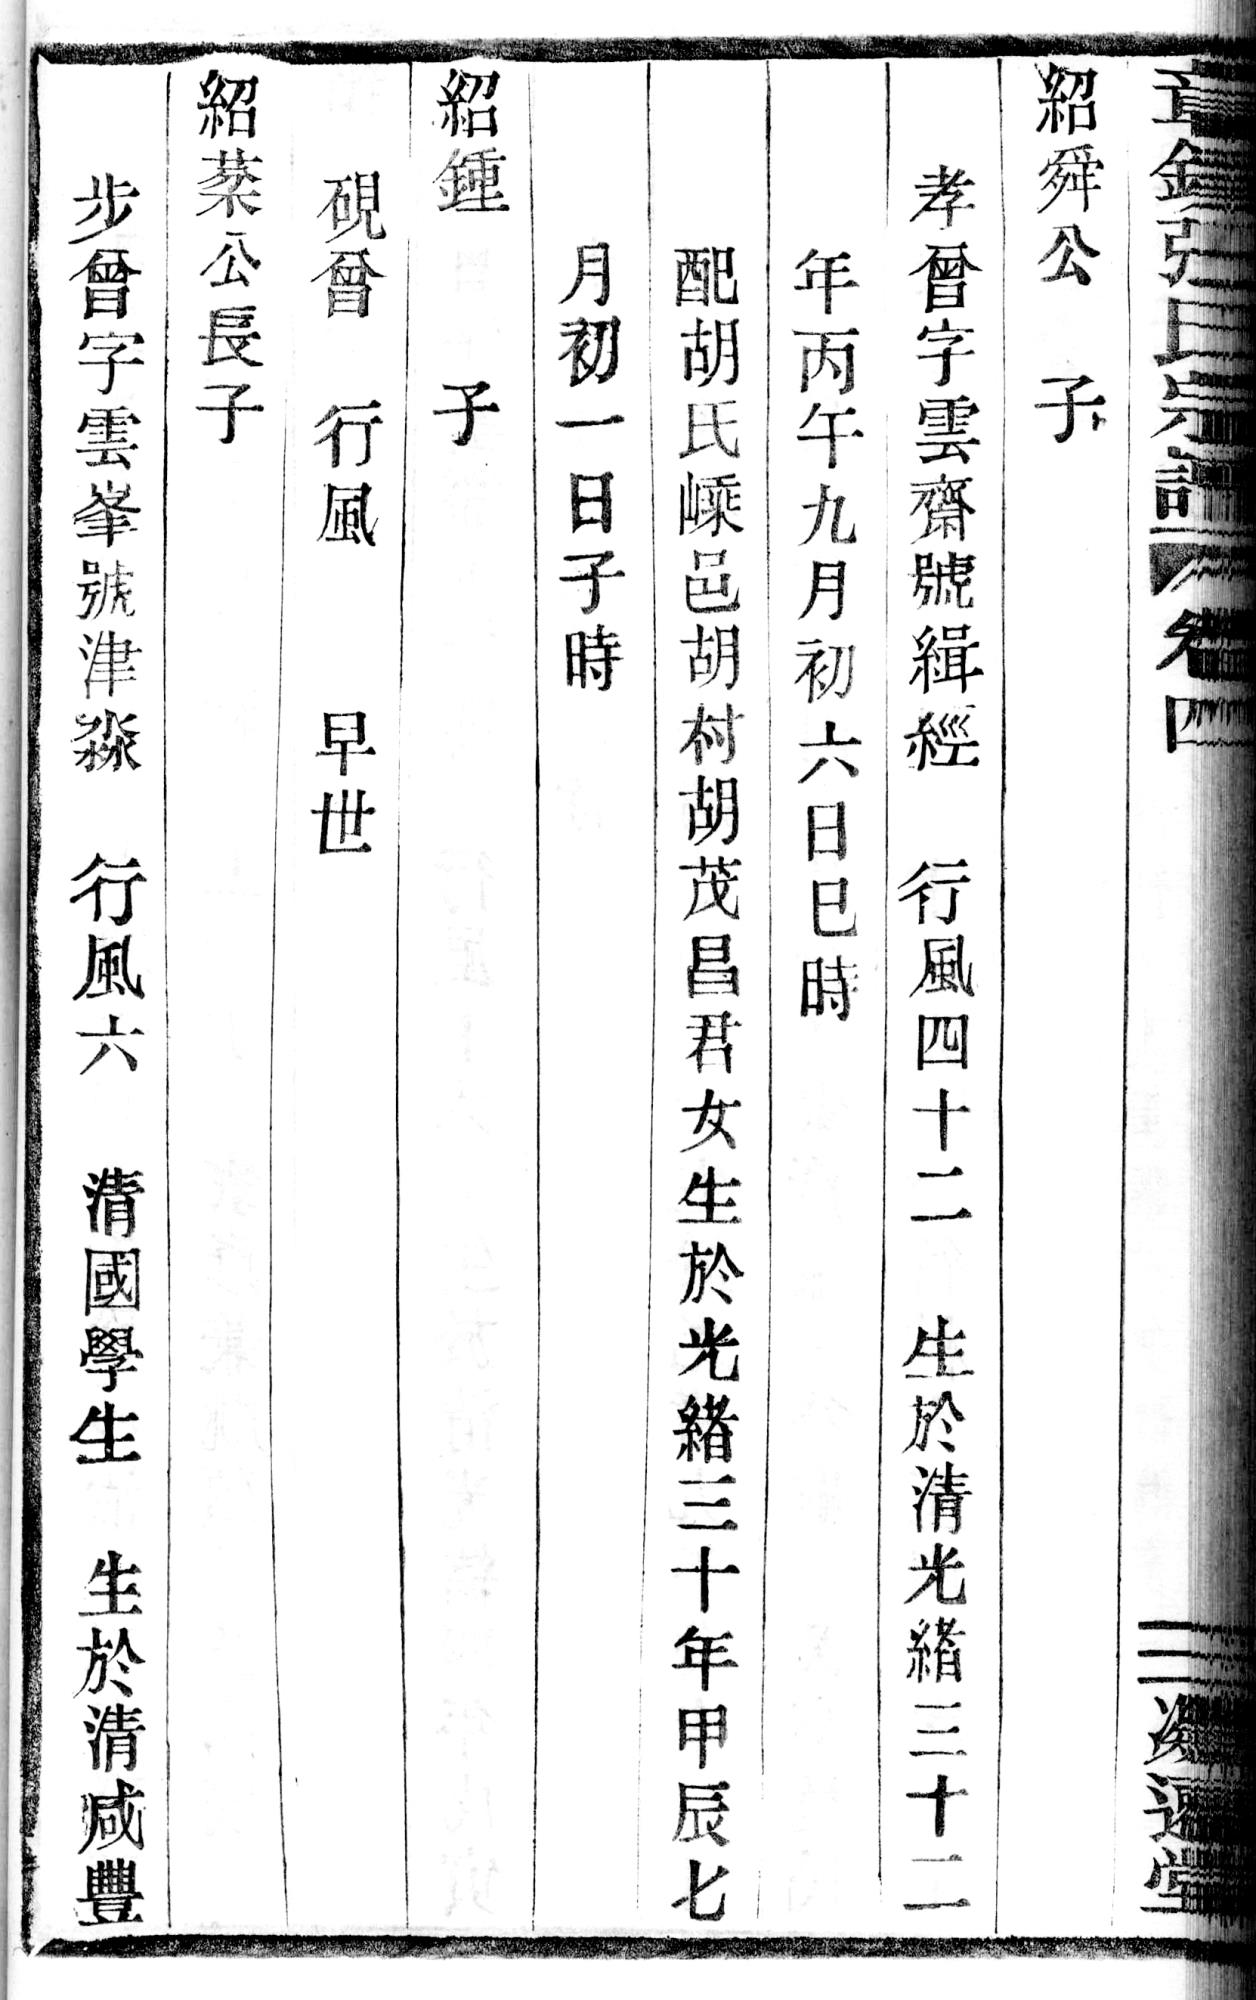 張氏宗譜 卷四
紹舜公 子
孝曾字雲齋號緝經 行風四十二 生於清光緒三十二
年丙午九月初六日巳時
配胡氏嵊邑胡村胡茂昌君女生於光緒三十年甲辰七
月初一日子時
紹鍾 子
硯曾 行風 早世
紹棻公長子
步曾字雲峯號津淼 行風六 清國學生 生於清咸豐